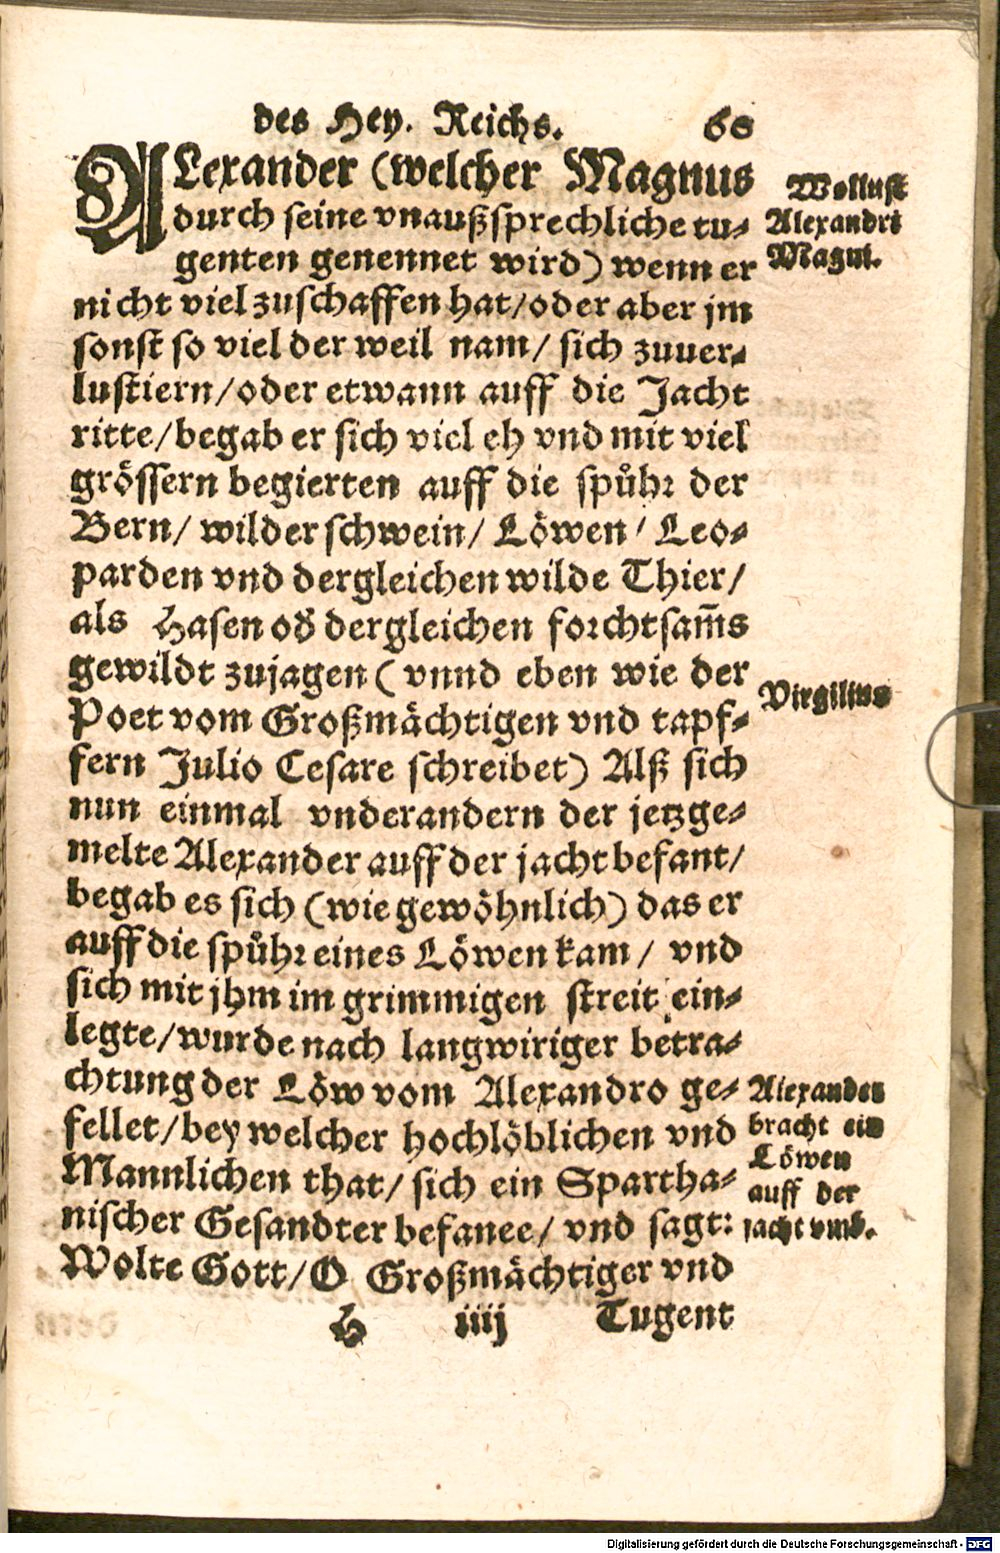 des Hey. Reichs. 60
ALexander (welcher Magnus
durch seine vnaußsprechliche tu-
genten genennet wird) wenn er
nicht viel zuschaffen hat/oder aber jm
sonst so viel der weil nam/ sich zuuer-
lustiern/oder etwann auff die Jacht
ritte/begab er sich viel eh vnd mit viel
grössern begierten auff die spůhr der
Bern/ wilder schwein/ Löwen/ Leo-
parden vnd dergleichen wilde Thier/
als Hasen oď dergleichen forchtsam̃s
gewildt zujagen (vnnd eben wie der
Poet vom Großmächtigen vnd tapf-
fern Julio Cesare schreibet) Alß sich
nun einmal vnderandern der jetzge-
melte Alexander auff der jacht befant/
begab es sich (wie gewöhnlich) das er
auff die spůhr eines Löwen kam/ vnd
sich mit jhm im grimmigen streit ein-
legte/wurde nach langwiriger betra-
chtung der Löw vom Alexandro ge-
fellet/bey welcher hochlöblichen vnd
Mannlichen that/ sich ein Spartha-
nischer Gesandter befanee/ vnd sagt:
Wolte Gott/O Großmächtiger vnd
H iiij Tugent
Wollust
Alexandri
Magni.
Virgilius
Alexander
bracht ein
Löwen
auff der
jacht vmb.
Digitalisierung gefördert durch die Deutsche Forschungsgemeinschaft - DFG